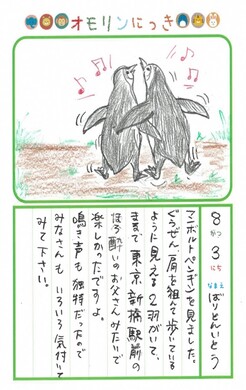 オモリンにっき
8がつ3にち なまえ ぼりとんいとう
フンボルトペンギンを見ました。
ぐうぜん、肩を組んで歩いている
ように見える2羽がいて、
まるで東京新橋駅前の
ほろ酔いのお父さんみたいで
楽しかったですよ。
鳴き声も独特だったので
みなさんもいろいろ気付いて
みて下さい。